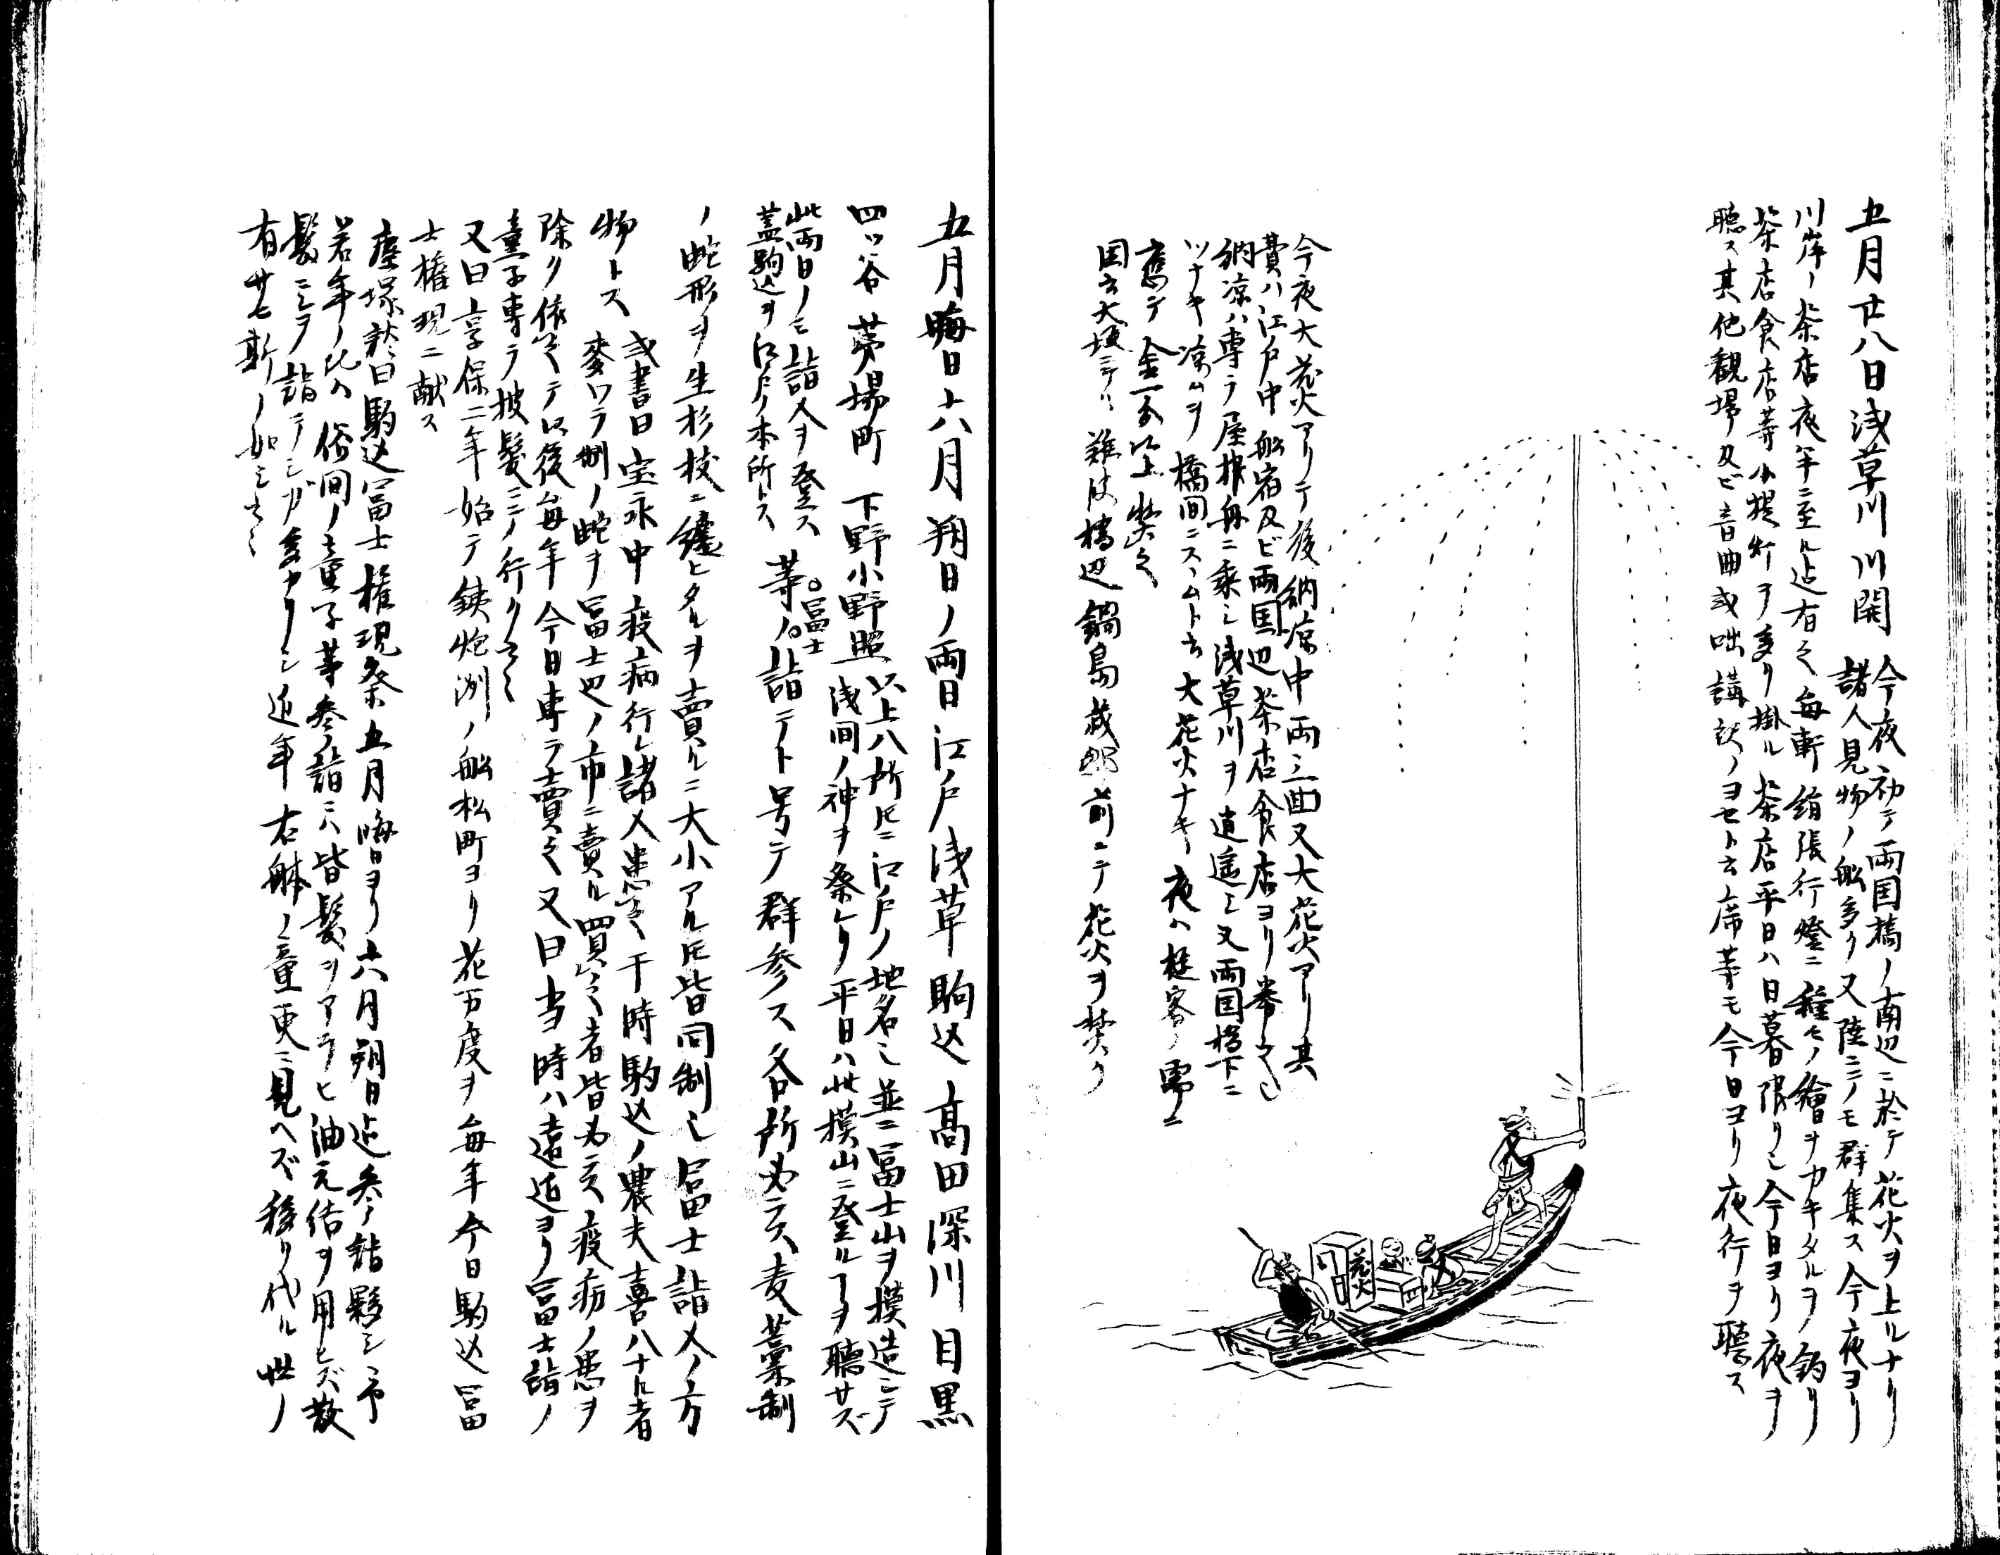 五月廿八日浅草川川開
今夜初テ両国橋ノ南辺ニ於テ花火ヲ上ルナリ
諸人見物ノ船多ク又陸ニテモ群集ス今夜ヨリ
川岸ノ茶店夜半ニ至ル迄有之毎軒絹張行燈ニ種々ノ繪ヲカキタルヲ釣リ
茶店食店等小提灯ヲ多ク掛ル茶店平日ハ日暮限リシ今日ヨリ夜ヲ
聴ス其他観場及ビ音曲或咄講釈ノヨセト云席等モ今日ヨリ夜行ヲ聴ス
今夜大花火アリテ後納凉中両三回又大花火アリ其
費ハ江戸中船宿及ビ両国辺茶店食店ヨリ
納凉ハ専ラ屋根舟ニ乗シ浅草川ヲ逍遥シ又両国橋下ニ
ツナキ凉ムヲ橋間ニスヽムト云大花火ナキ夜ハ遊客ノ需ニ
應テ金一両以上焚之
因云大坂ニテハ難波橋辺鍋島蔵邸前ニテ花火ヲ焚ク
花火
五月晦日六月朔日ノ両日江戸浅草駒込高田深川目黒
四ツ谷茅場町下野小野照
以上八所トモニ江戸ノ地名也並ニ冨士山ヲ摸造シテ
浅間ノ神ヲ祭レリ平日ハ此摸山ニ登ルヿヲ聴サズ
此両日ノミ詣人ヲ登ス
蓋駒込ヲ江戸ノ本所トス
等ノ冨士詣テト号テ群参ス各所必ラズ麦藁制
ノ蛇形ヲ生杉枝ニ纏ヒタルヲ賣ルニ大小アルトモ皆同制也冨士詣人ノ方
物トス
或書曰宝永中疫病行レ諸人患之干時駒込ノ農夫喜八ナル者
麥ワラ制ノ蛇ヲ冨士辺ノ市ニ賣ル買之者皆必ズ疫病ノ患ヲ
除ク依之テ以後毎年今日専ラ賣之又曰当時ハ遠近ヨリ冨士詣ノ
童子専ラ披髪ニテ行クト云々
又曰享保二年始テ鉄炮洲ノ船松町ヨリ花万度ヲ毎年今日駒込冨
士権現ニ献ス
塵塚談曰駒込冨士権現祭五月晦日ヨリ六月朔日迄参詣夥シ予
若年ノ比ハ俗間ノ童子等参詣ニハ皆髪ヲアラヒ油元結ヲ用ヒズ散
髪ニシテ詣テシガ多カリシ近年右躰ノ童更ニ見ヘズ移リ代ル世ノ
有サ七斯ノ如シト云々